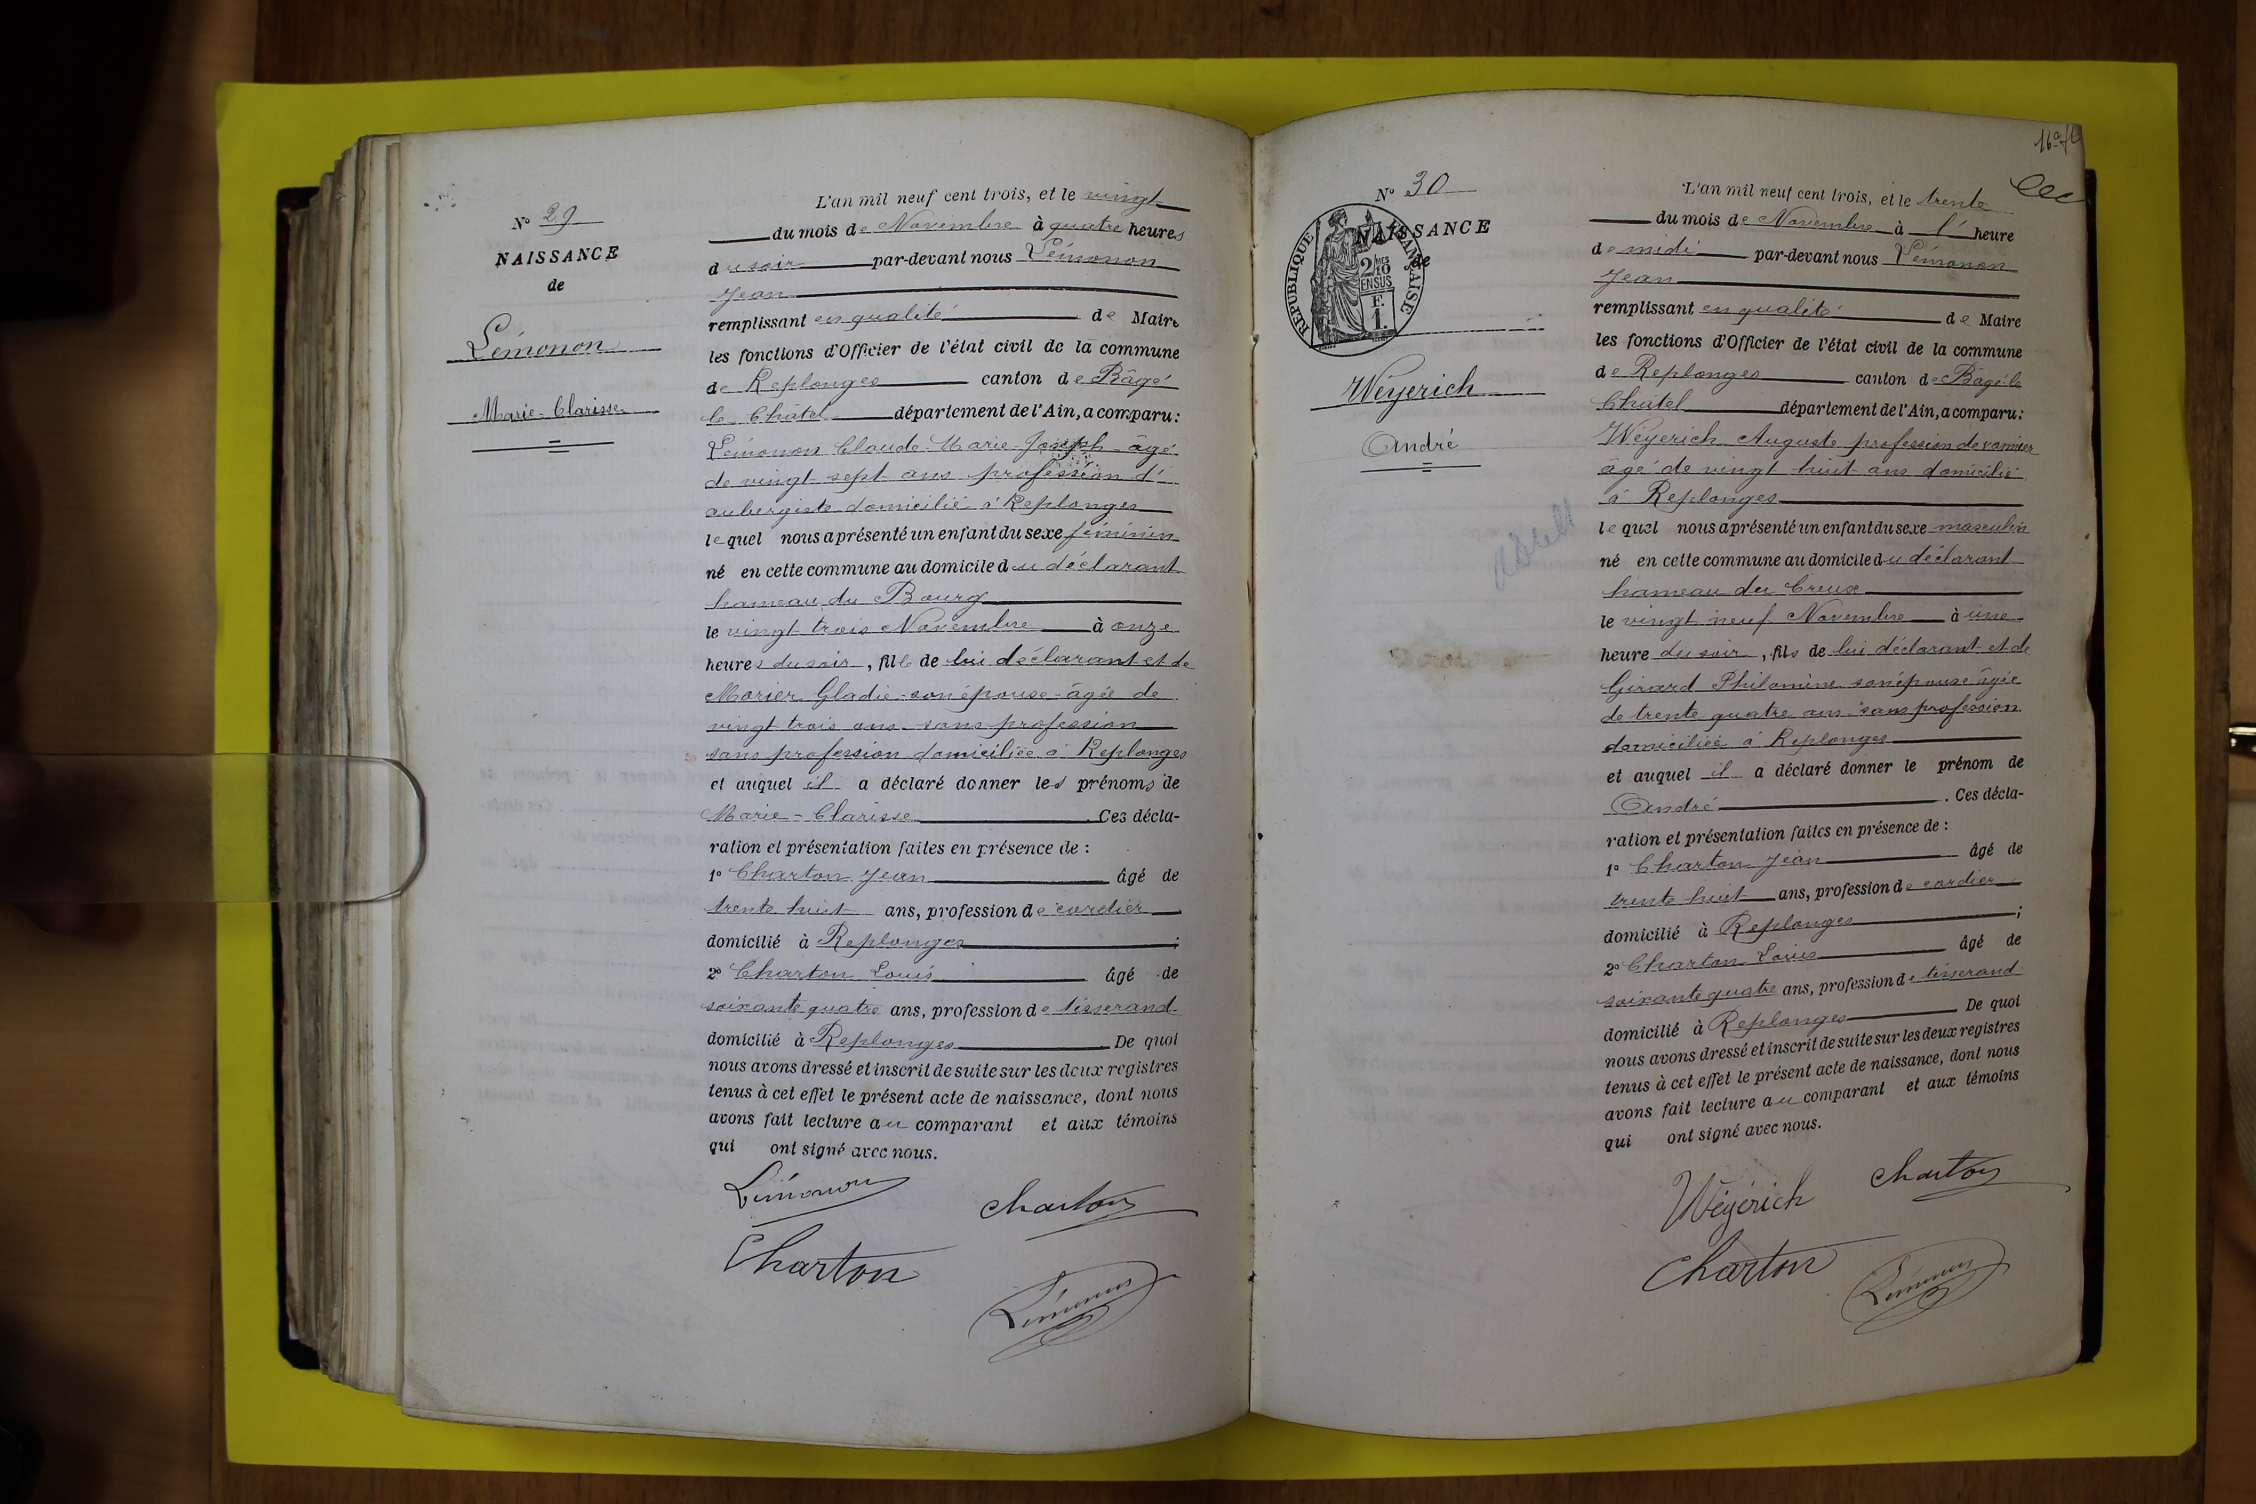 N° 29
NAISSANCE
de
Lémonon
Marie-Clarisse
L'an mil neuf cent trois, et le vingt
du mois de Novembre à quatre heures
du soir par-devant nous Lémonon
Jean
remplissant en qualité de Maire
les fonctions d'Officier de l'état civil de la commune
de Replonges canton de Bâgé
le Châtel département de l'Ain, a comparu:
Lémonon Claude-Marie-Joseph âgé
de vingt-sept ans profession d'
aubergiste domicilié à Replonges
lequel nous a présenté un enfant du sexe féminin
né en cette commune au domicile du déclarant
hameau du Bourg
le vingt trois Novembre à onze
heures du soir, fille de lui déclarant et de
Morier Gladie son épouse âgée de
vingt trois ans sans profession
sans profession domiciliée à Replonges
et auquel il a déclaré donner les prénoms de
Marie-Clarisse. Ces décla-
ration et présentation faites en présence de :
1° Charton Jean âgé de
trente huit ans, profession de cordier
domicilié à Replonges ;
2° Charton Louis âgé de
soixante quatre ans, profession de tisserand
domicilié à Replonges De quoi
nous avons dressé et inscrit de suite sur les deux registres
tenus à cet effet le présent acte de naissance, dont nous
avons fait lecture au comparant et aux témoins
qui ont signé avec nous.
Lémonon Charton
Charton
Lémonon
N° 30
NAISSANCE
de
RÉPUBLIQUE FRANÇAISE
2/10
EN SUS
F.
1.
Weyerich
André
L'an mil neuf cent trois, et le trente
du mois de Novembre à l' heure
de midi par-devant nous Lémonon
Jean
remplissant en qualité de Maire
les fonctions d'Officier de l'état civil de la commune
de Replonges canton de Bâgé-le
Châtel département de l'Ain, a comparu:
Weyerich Auguste profession de vannier
âgé de vingt huit ans domicilié
à Replonges
lequel nous a présenté un enfant du sexe masculin
né en cette commune au domicile du déclarant
hameau du Creux
le vingt neuf Novembre à une
heure du soir, fils de lui déclarant et de
Girard Philomène son épouse âgée
de trente quatre ans sans profession
domiciliée à Replonges
et auquel il a déclaré donner le prénom de
André. Ces décla-
ration et présentation faites en présence de :
1° Charton Jean âgé de
trente huit ans, profession de cordier
domicilié à Replonges ;
2° Charton Louis âgé de
soixante quatre ans, profession de tisserand
domicilié à Replonges De quoi
nous avons dressé et inscrit de suite sur les deux registres
tenus à cet effet le présent acte de naissance, dont nous
avons fait lecture au comparant et aux témoins
qui ont signé avec nous.
Weyérich Charton
Charton Lémonon